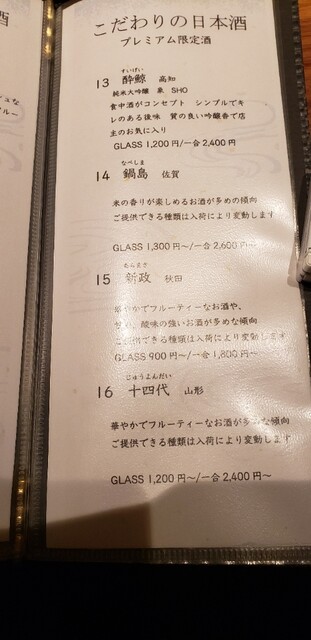 こだわりの日本酒
プレミアム限定酒
すいげい
13 酔鯨 高知
純米大吟醸 象 SHO
食中酒がコンセプト シンプルでキ
レのある後味 質の良い吟醸香で店
主のお気に入り
GLASS 1,200円/一合2,400円
なべしま
14 鍋島 佐賀
米の香りが楽しめるお酒が多めの傾向
ご提供できる種類は入荷により変動します
GLASS 1,300円~/一合2,600円~
あらまさ
15 新政 秋田
華やかでフルーティーなお酒や、
甘め、酸味の強いお酒が多めな傾向
ご提供できる種類は入荷により変動します
GLASS 900円~/一合1,800円~
じゅうよんだい
16 十四代 山形
華やかでフルーティーなお酒が多めな傾向
ご提供できる種類は入荷により変動します
GLASS 1,200円~/一合2,400円~